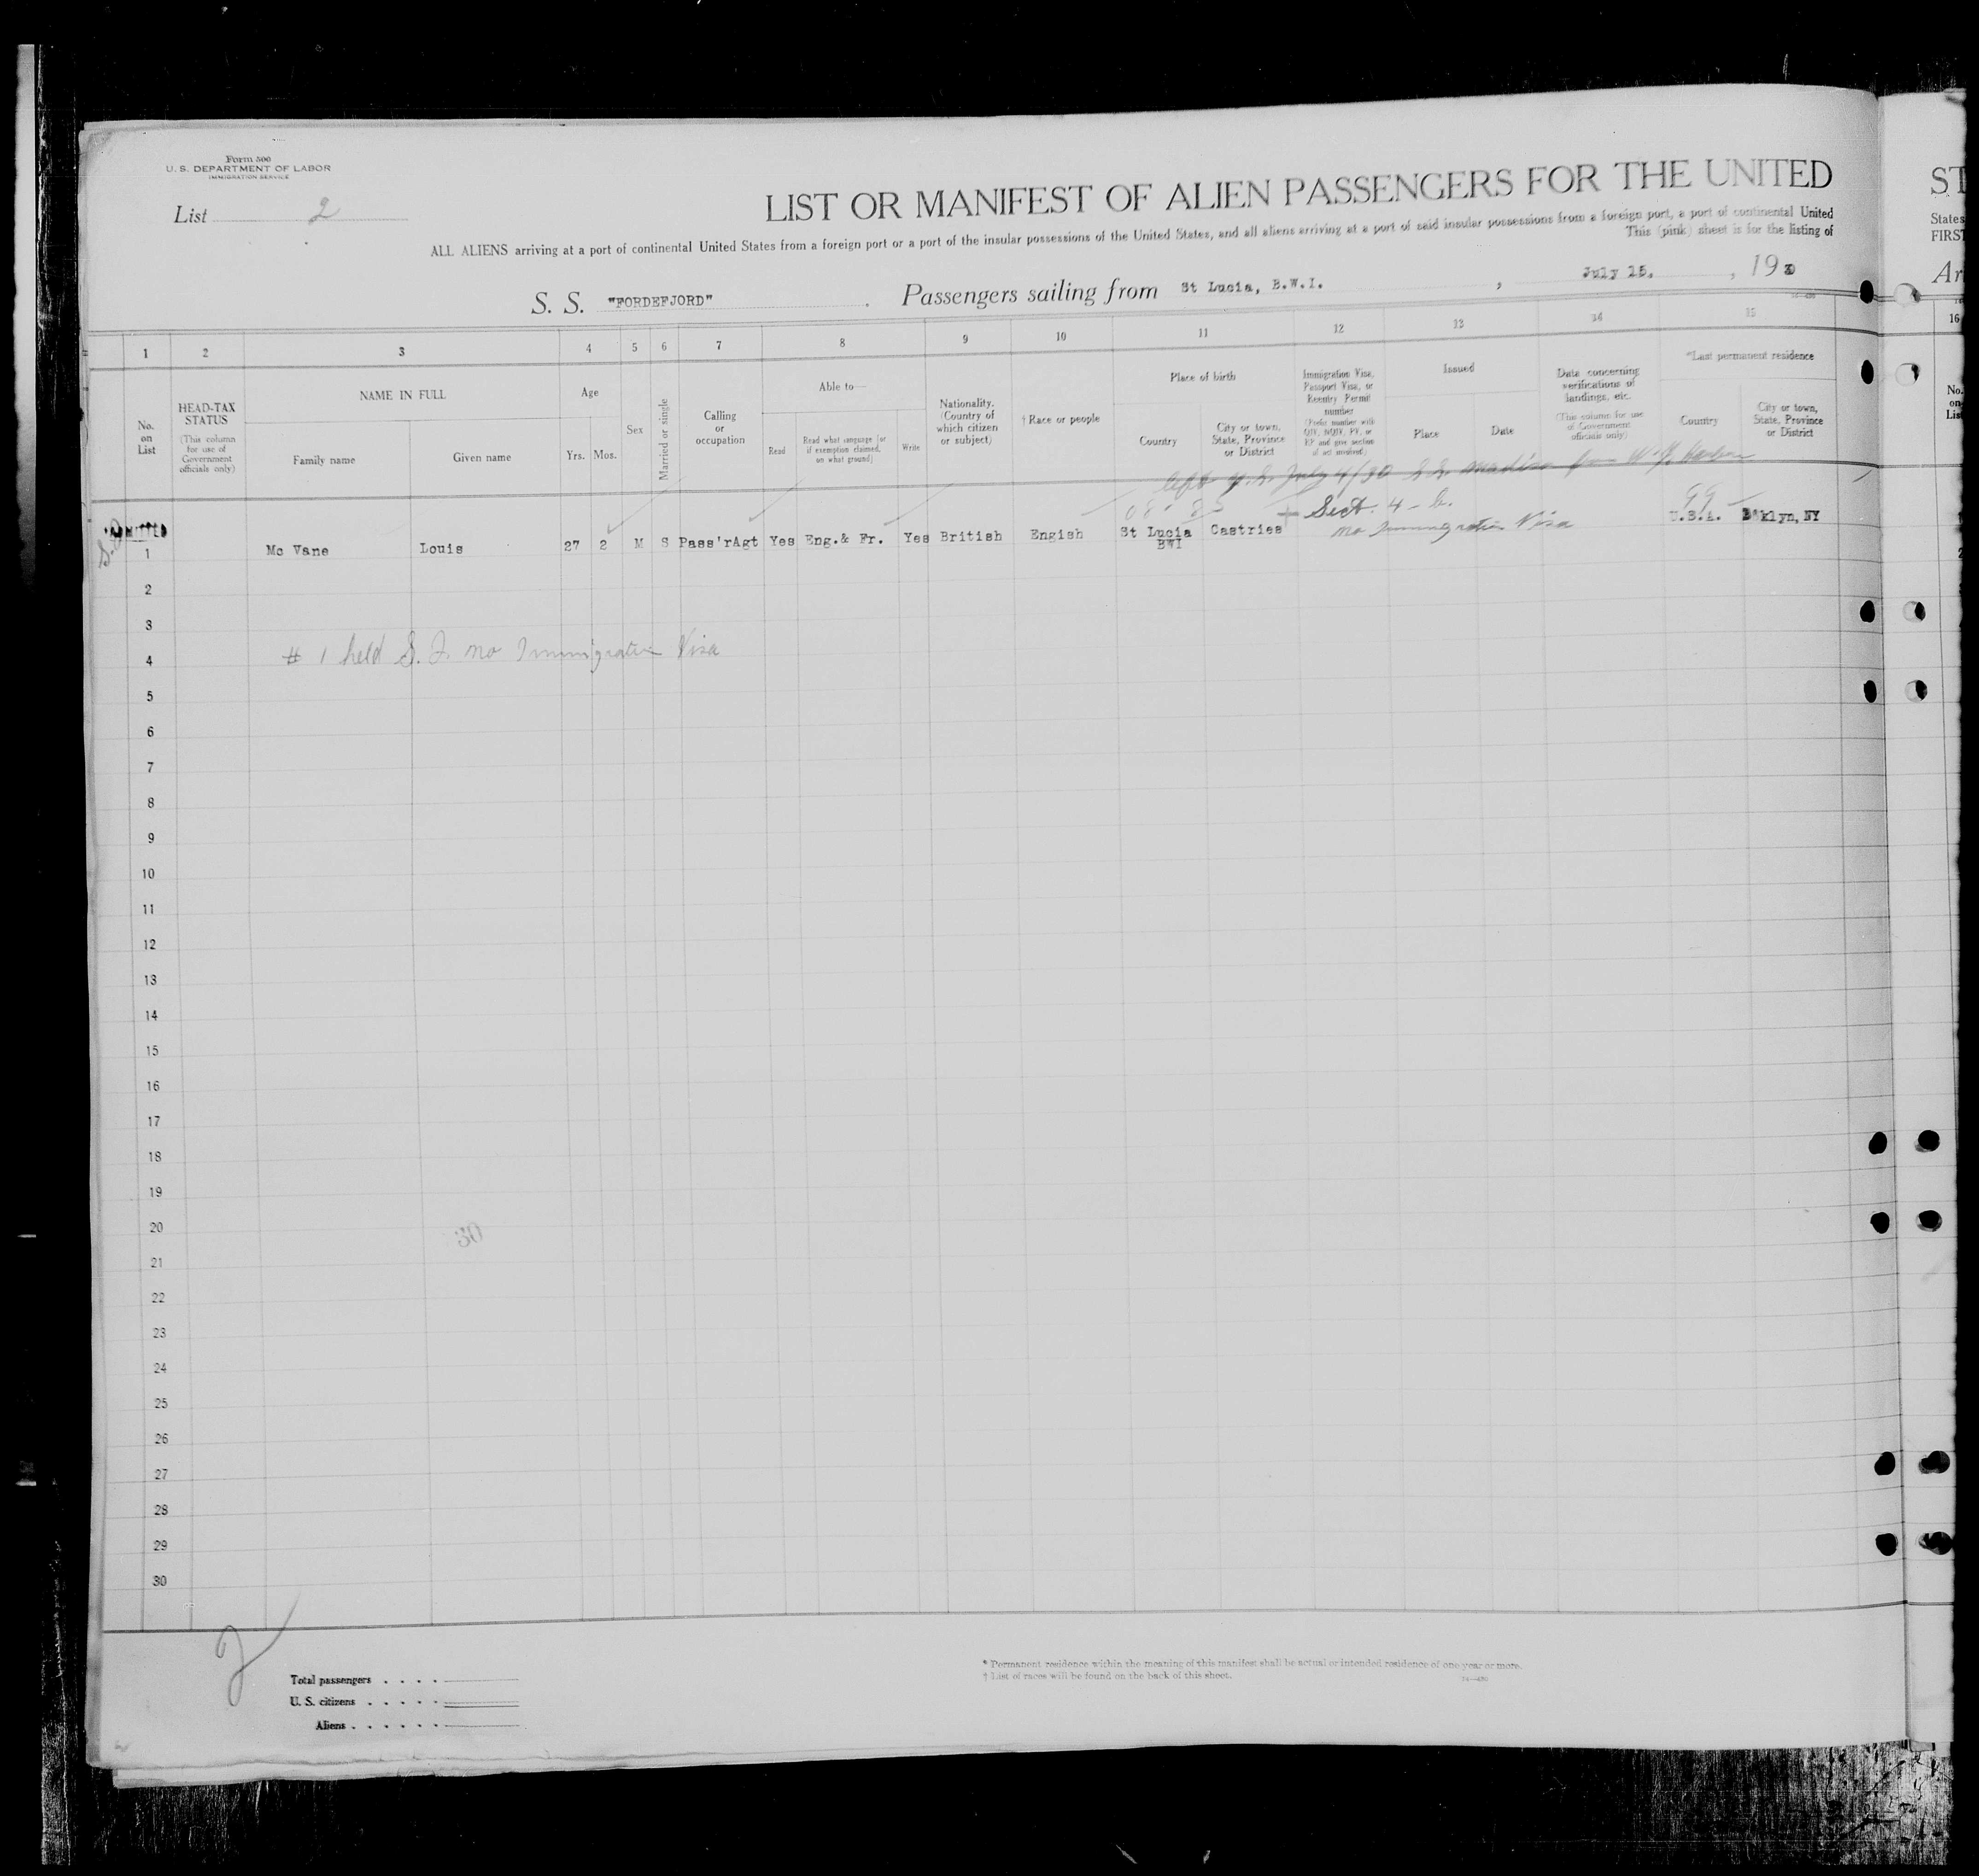 Form 500
U. S. DEPARTMENT OF LABOR
IMMIGRATION SERVICE
List 2
LIST OR MANIFEST OF ALIEN PASSENGERS FOR THE UNITED
ALL ALIENS arriving at a port of continental United States from a foreign port or a port of the insular possessions of the United States, and all aliens arriving at a port of said insular possessions from a foreign port, a port of continental United
This (pink) sheet is for the listing of
S. S. "FORDEFJORD" Passengers sailing from St Lucia, B.W.I. , July 15. , 19
ST
States
FIRST
Ar
1 2 3 4 5 6 7 8 9 10 11 12 13 14 15
16
No. on List
HEAD-TAX STATUS
(This column for use of Government officials only)
NAME IN FULL
Family name
Given name
Age
Yrs. Mos.
Sex
Married or single
Calling or occupation
Able to—
Read
Read what language (or if exemption claimed, on what ground)
Write
Nationality. (Country of which citizen or subject)
† Race or people
Place of birth
Country
City or town, State, Province or District
Immigration Visa, Passport Visa, or Reentry Permit number
(Prefix number with QIV, NQIV, PV, or RP and give section of act involved)
Issued
Place
Date
Data concerning verifications of landings, etc.
(This column for use of Government officials only)
*Last permanent residence
Country
City or town, State, Province or District
No. on List
left July 4/30 S.S. from N.Y. Harbor
ADMITTED
Sect. 4 - b.
99
1 Mc Vane Louis 27 2 M S Pass'rAgt Yes Eng.& Fr. Yes British Engish St Lucia BWI Castries no Immigration Visa U.S.A. B'klyn, NY
2
3
# 1 held S. I. no Immigration Visa
4
5
6
7
8
9
10
11
12
13
14
15
16
17
18
19
20
30
21
22
23
24
25
26
27
28
29
30
Total passengers . . . .
U. S. citizens . . . . .
Aliens . . . . . .
* Permanent residence within the meaning of this manifest shall be actual or intended residence of one year or more.
† List of races will be found on the back of this sheet.